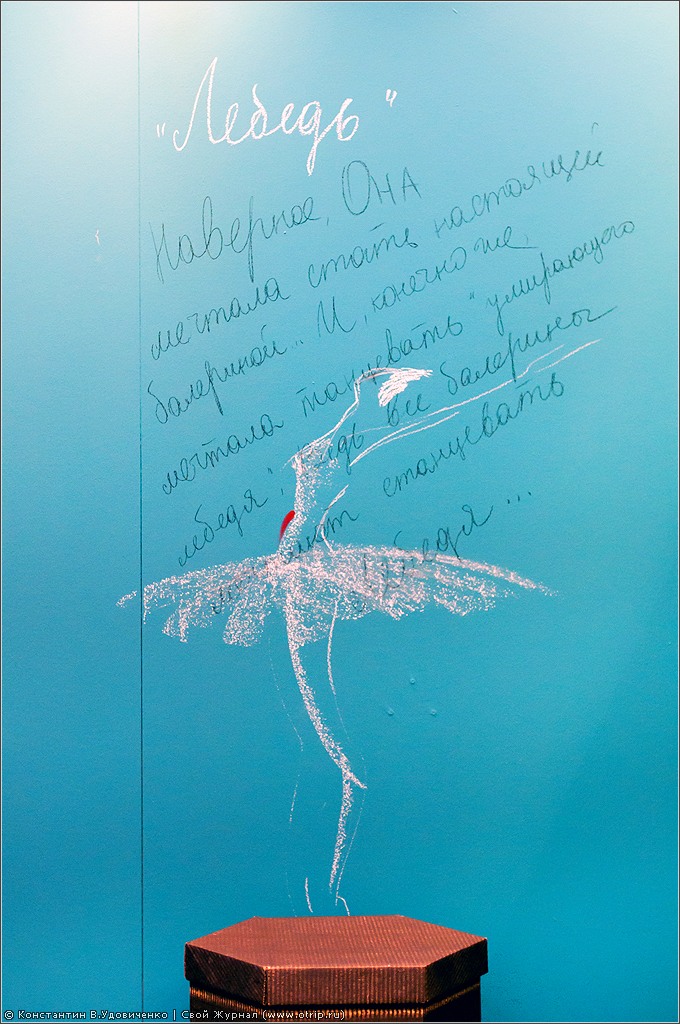 "Лебедь"
Наверное, Она
мечтала стать настоящей
балериной... И, конечно же,
мечтала танцевать "умирающего
лебедя", ведь все балерины
мечтают станцевать
лебедя...
© Константин В.Удовиченко | Свой Журнал (www.otrip.ru)